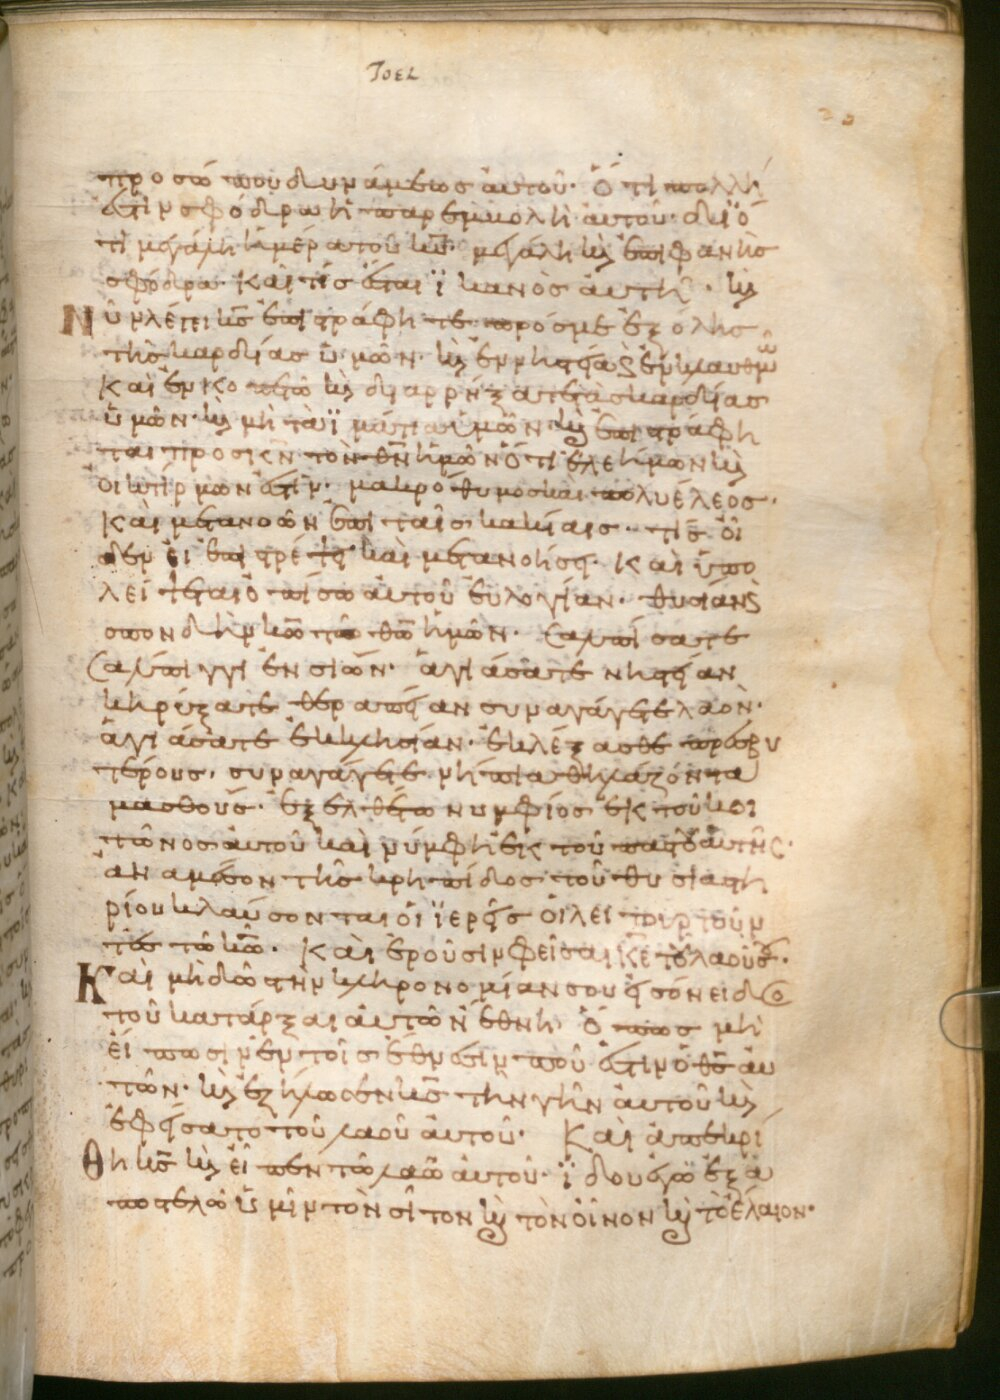 Ioel
προσώπου δυνάμεως αὐτοῦ· Ὅτι πολλή
ἐστιν σφόδρα ἡ παρεμβολὴ αὐτοῦ· διό
τι μεγάλη ἡμέρα τοῦ κυ· μεγάλη κ(αὶ) ἐπιφανὴς
σφόδρα· Καὶ τίς ἔσται ἱκανὸς αὐτῇ· κ(αὶ)
νῦν λέγει κς ἐπιστράφητε πρός με ἐξ ὅλης
τῆς καρδίας ὑμῶν· κ(αὶ) ἐν νηστείᾳ κ(αὶ) ἐν κλαυθμῶ
Καὶ ἐν κοπετῶ κ(αὶ) διαρρήξατε τὰς καρδίας
ὑμῶν· κ(αὶ) μὴ τὰ ἱμάτια ὑμῶν· κ(αὶ) ἐπιστράφη
ται πρὸς κν τὸν θν ἡμῶν Ὅτι ἐλεήμων κ(αὶ)
οἰκτίρμων ἐστίν· μακρόθυμος καὶ πολυέλεος·
Καὶ μετανοῶν ἐπὶ ταῖς κακίαις· τίς οἶ
δεν εἰ ἐπιστρέψει καὶ μετανοήσει· Καὶ ὑπο
λείψεται ὀπίσω αὐτοῦ εὐλογίαν· θυσίαν κ(αὶ)
σπονδὴν κω τῶ θω ἡμῶν· Σαλπίσατε
Σάλπιγγι ἐν σιών· ἁγιάσατε νηστείαν
κηρύξατε θεραπείαν συναγάγετε λαόν·
ἁγιάσατε ἐκκλησίαν· ἐκλέξασθε πρεσβυ
τέρους· συναγάγετε νήπια θηλάζοντα
μασθούς· ἐξελθέτω νυμφίος ἐκ τοῦ κοι
τῶνος αὐτοῦ καὶ νύμφη ἐκ τοῦ παστοῦ αὐτῆς·
ἀναμέσον τῆς κρηπίδος τοῦ θυσιαστη
ρίου κλαύσονται οἱ ἱερεῖς οἱ λειτουργοῦν
τες τῶ κω· Καὶ ἐροῦσιν φεῖσαι κε τοῦ λαοῦ σου·
Καὶ μὴ δῶς τὴν κληρονομίαν σου εἰς ὄνειδος
τοῦ κατάρξαι αὐτῶν ἔθνη· Ὅπως μὴ
εἴπωσιν ἐν τοῖς ἔθνεσιν ποῦ ἐστιν ὁ θς αὐ
τῶν· κ(αὶ) ἐζήλωσεν κς τὴν γῆν αὐτοῦ κ(αὶ)
ἐφείσατο τοῦ λαοῦ αὐτοῦ· Καὶ ἀπεκρί
θη κς κ(αὶ) εἶπεν τῶ λαῶ αὐτοῦ· ἰδοὺ ἐγὼ ἐξα
ποστελῶ ὑμῖν τὸν σῖτον κ(αὶ) τὸν οἶνον κ(αὶ) τὸ ἔλαιον·